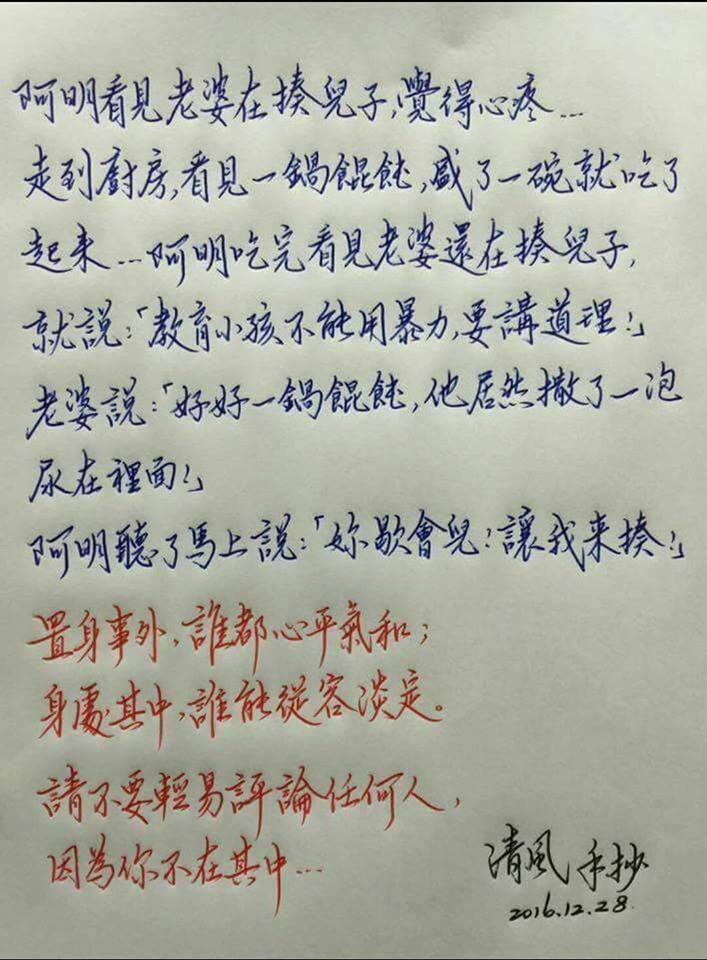 阿明看見老婆在揍兒子,覺得心疼...
走到廚房,看見一鍋餛飩,盛了一碗就吃了
起来...阿明吃完看見老婆還在揍兒子,
就說:「教育小孩不能用暴力,要講道理!」
老婆說:「好好一鍋餛飩,他居然撒了一泡
尿在裡面!」
阿明聽了馬上說:「妳歇會兒!讓我来揍!」
置身事外,誰都心平氣和;
身處其中,誰能從容淡定。
請不要輕易評論任何人,
因為你不在其中...
清風 手抄
2016.12.28